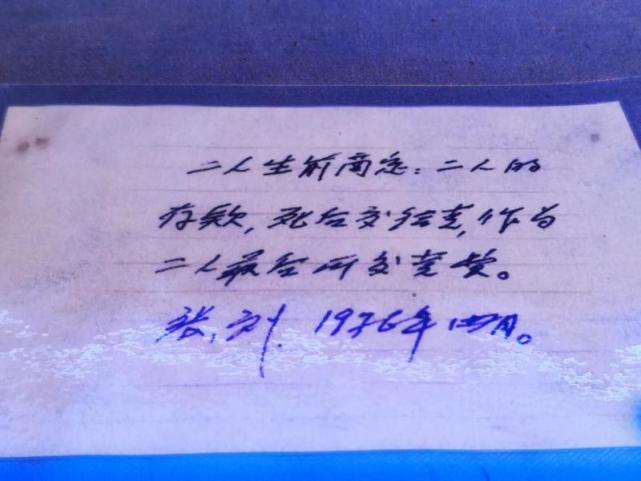 二人生前商定：二人的
存款，死后交给党，作为
二人最后所交党费。
张、刘 1976年四月。